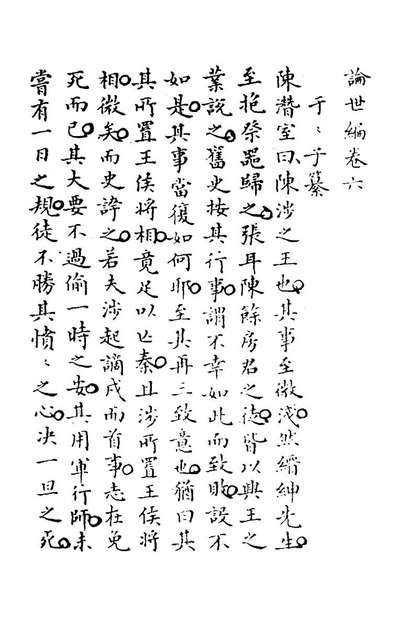 論世編卷六
于〻子纂
陳潛室曰陳涉之王也其事至微淺然縉紳先生
至抱祭噐歸之張耳陳餘房君之徒皆以興王之
業說之舊史按其行事謂不幸如此而致敗設不
如是其事當復如何耶至其再三致意也猶曰其
其所置王侯將相竟足以亡秦且涉所置王侯將
相微矣而史誇之若夫涉起謫戍而首事志在免
死而已其大要不過偷一時之安其用軍行師未
嘗有一日之規徒不勝其憤〻之心决一旦之死